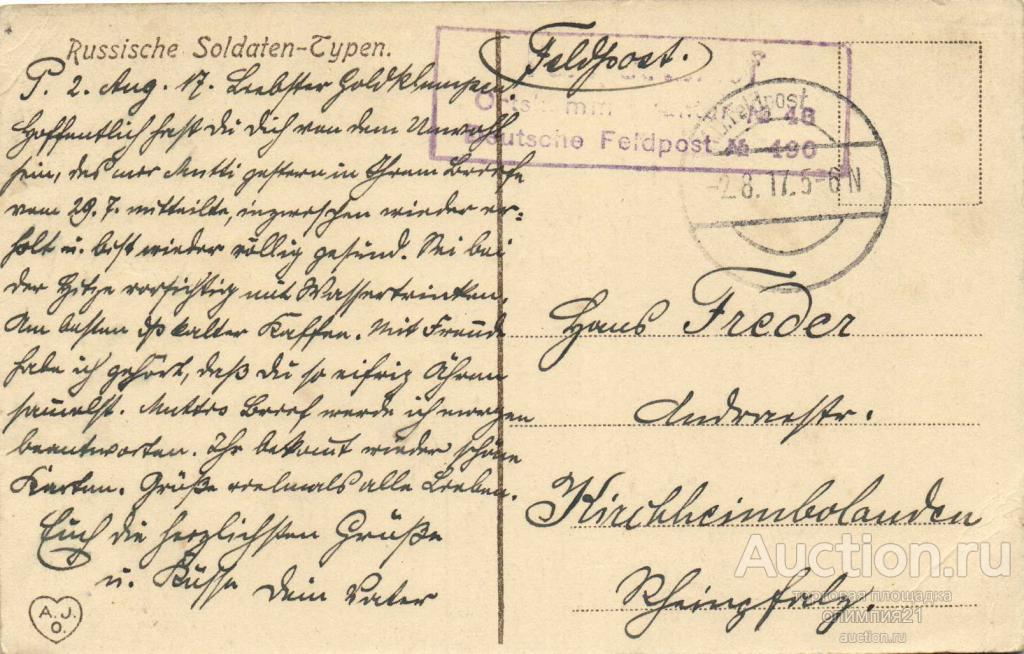 Russische Soldaten-Typen.
P. 2. Aug. 17. Liebster Goldklumpen!
Hoffentlich hast du dich von dem Unwohl
sein, das mir Mutti gestern in Ihrem Briefe
vom 29. 7. mitteilte, inzwischen wieder er=
holt u. bist wieder völlig gesund. Sei bei
der Hitze vorsichtig mit Wassertrinken.
Am besten ist kalter Kaffee. Mit Freude
habe ich gehört, daß du so eifrig Ähren
sammelst. Muttis Brief werde ich morgen
beantworten. Ihr bekommt wieder schöne
Karten. Grüße vielmals alle Lieben.
Euch die herzlichsten Grüße
u. Küsse Dein Vater
A. J. O.
Feldpost.
№ 48
Deutsche Feldpost № 490
Feldpost
-2.8.17.5-6N
Hans Freder
Andreaestr.
Kirchheimbolanden
Rheinpfalz.
Auction.ru
торговая площадка
олимпия21
auction.ru